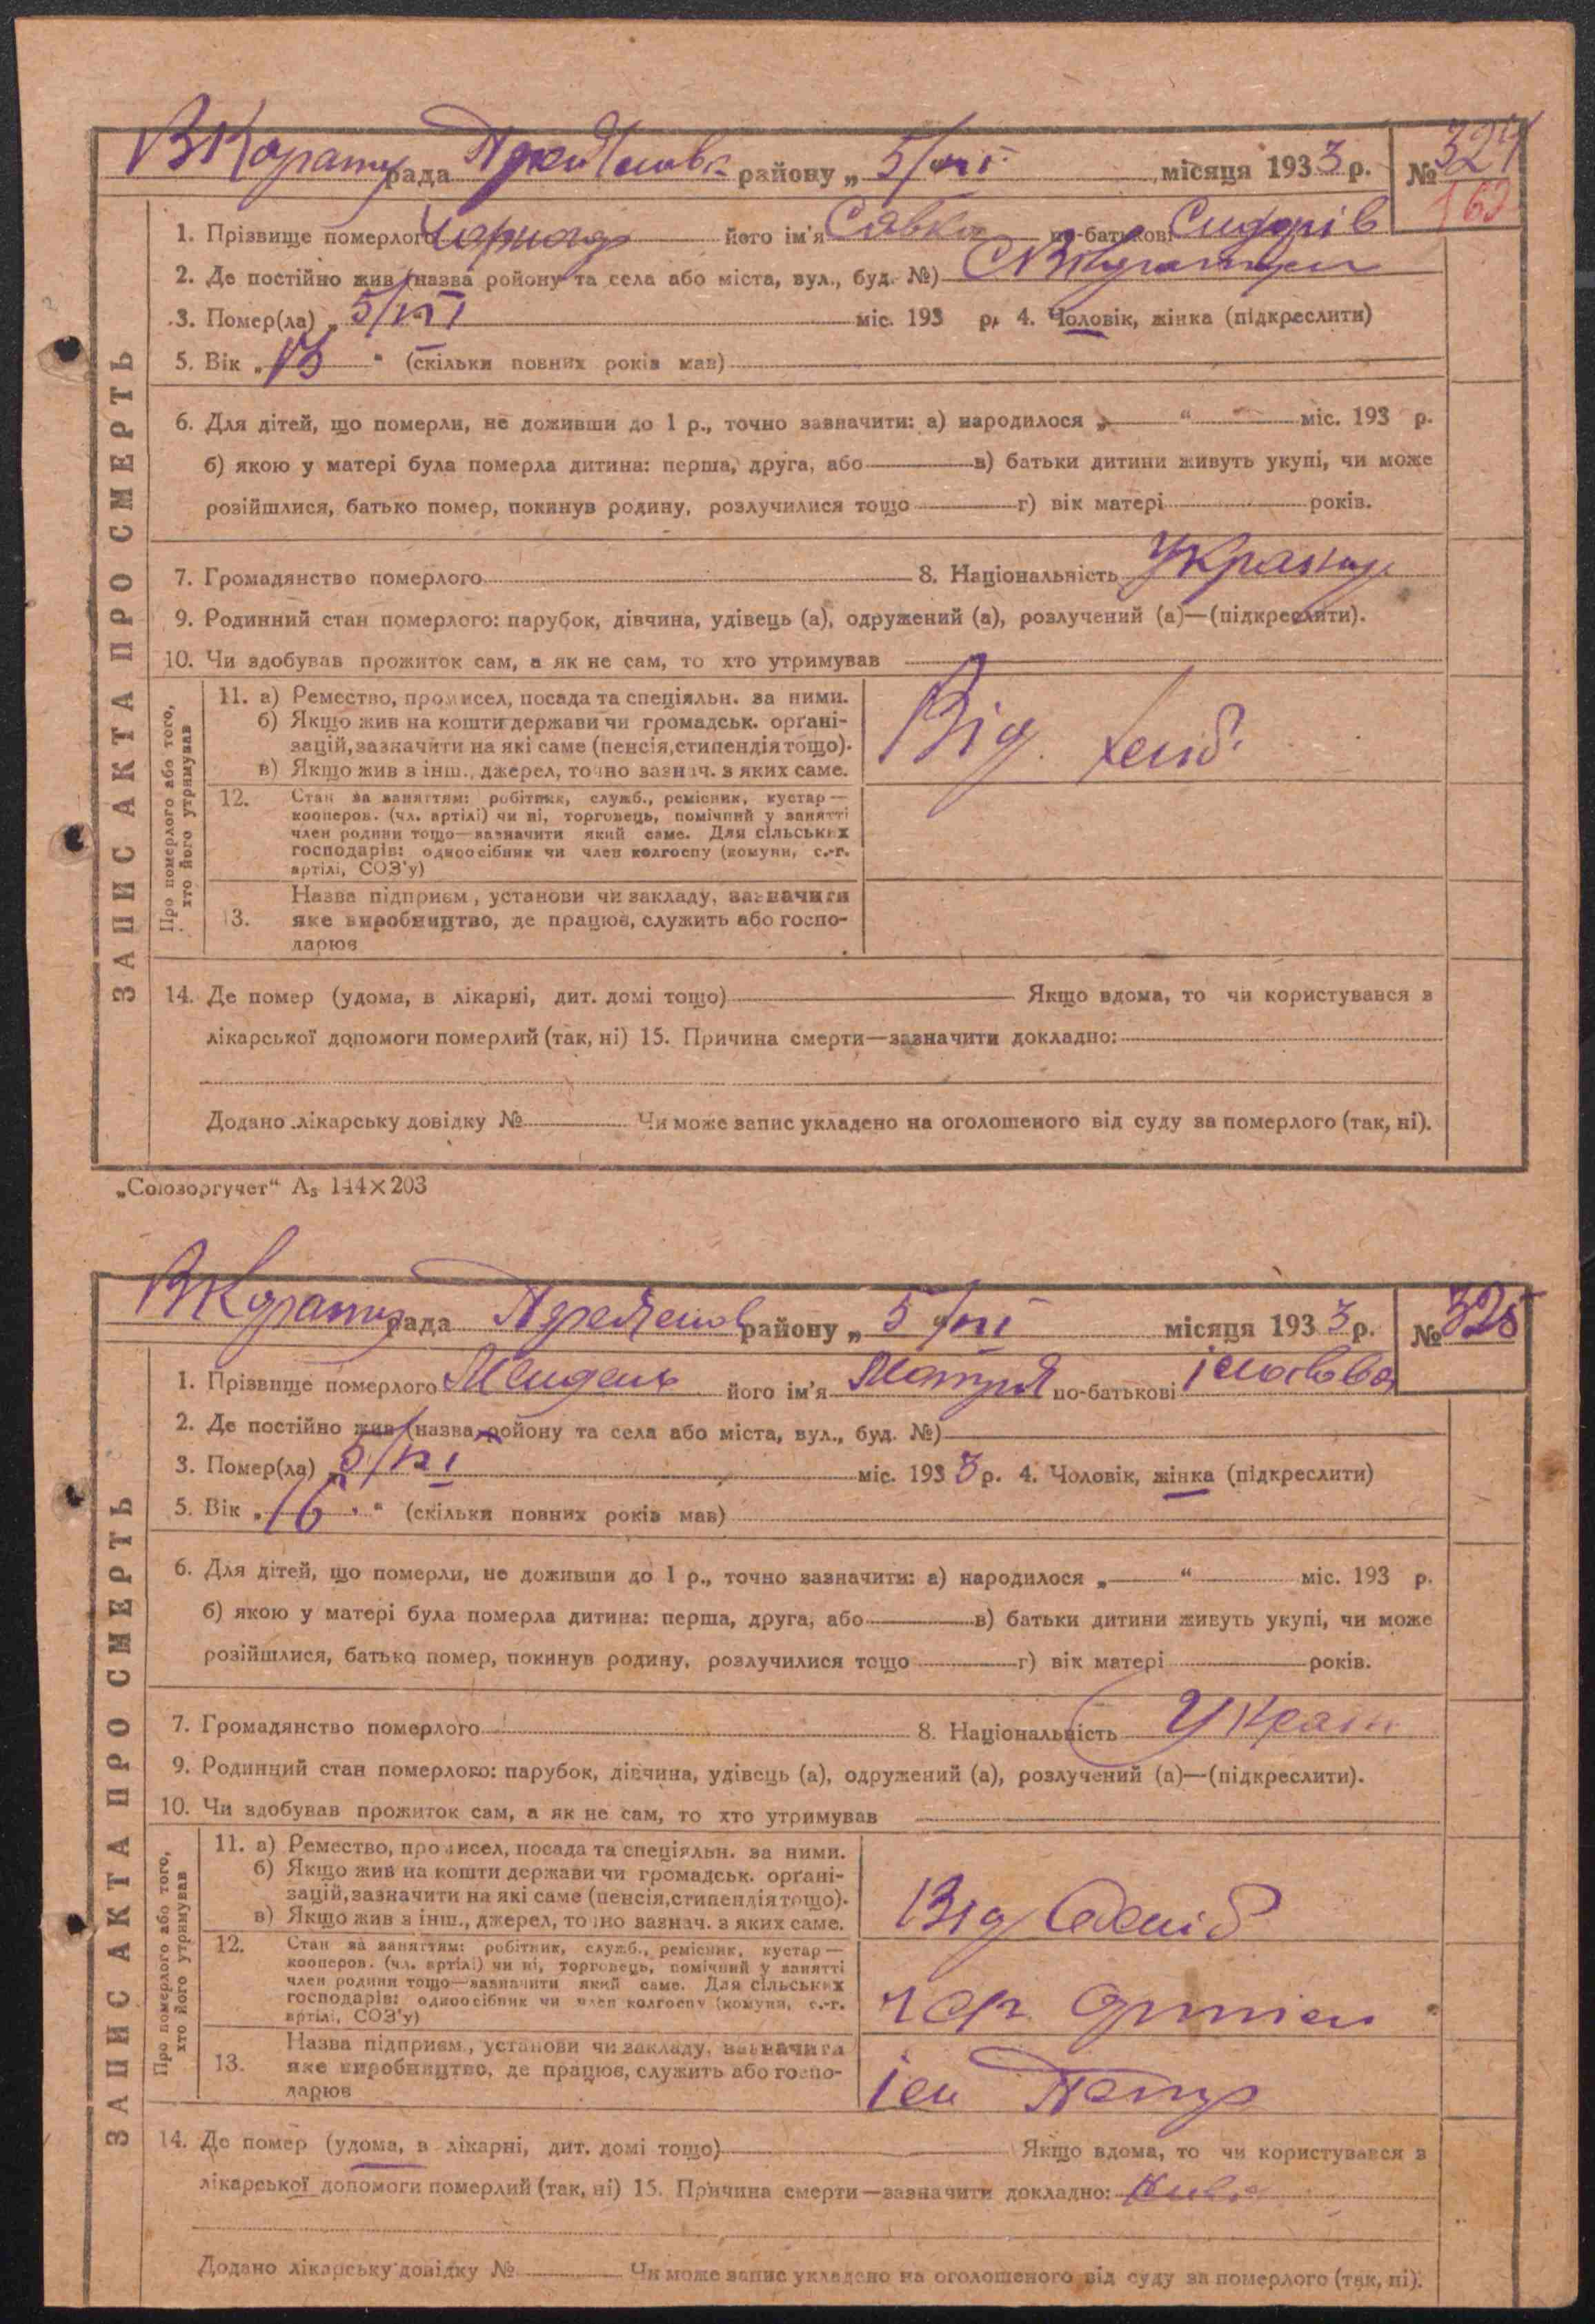 рада району „ 5/VI місяця 1933 р. № 324
162
1. Прізвище померлого його ім'я Савка по-батькові Сидорів
2. Де постійно жив (назва ройону та села або міста, вул., буд. №)
3. Помер(ла) „ 5/VI міс. 193 р. 4. Чоловік, жінка (підкреслити)
5. Вік „ 13 “ (скільки повних років мав)
6. Для дітей, що померли, не доживши до 1 р., точно зазначити: а) народилося „ “ міс. 193 р.
б) якою у матері була померла дитина: перша, друга, або в) батьки дитини живуть укупі, чи може
розійшлися, батько помер, покинув родину, розлучилися тощо г) вік матері років.
7. Громадянство померлого 8. Національність
9. Родинний стан померлого: парубок, дівчина, удівець (а), одружений (а), розлучений (а)—(підкреслити).
10. Чи здобував прожиток сам, а як не сам, то хто утримував
ЗАПИС АКТА ПРО СМЕРТЬ
Про померлого або того, хто його утримував
11. а) Ремество, промисел, посада та спеціяльн. за ними.
б) Якщо жив на кошти держави чи громадськ. орґані-
зацій, зазначити на які саме (пенсія, стипендія тощо).
в) Якщо жив з інш., джерел, точно зазнач. з яких саме.
Від
12. Стан за заняттям: робітник, служб., ремісник, кустар—
кооперов. (чл. артілі) чи ні, торговець, помічний у занятті
член родини тощо—зазначити який саме. Для сільських
господарів: одноосібник чи член колгоспу (комуни, с.-г.
артілі, СОЗ'у)
13. Назва підприєм., установи чи закладу, зазначити
яке виробництво, де працює, служить або госпо-
дарює
14. Де помер (удома, в лікарні, дит. домі тощо) Якщо вдома, то чи користувався з
лікарської допомоги померлий (так, ні) 15. Причина смерти—зазначити докладно:
Додано лікарську довідку № Чи може запис укладено на оголошеного від суду за померлого (так, ні).
„Союзоргучет“ А₅ 144×203
рада району „ 5/VI місяця 1933 р. № 325
1. Прізвище померлого його ім'я по-батькові
2. Де постійно жив (назва ройону та села або міста, вул., буд. №)
3. Помер(ла) „ 5/VI міс. 1933 р. 4. Чоловік, жінка (підкреслити)
5. Вік „ 16 “ (скільки повних років мав)
6. Для дітей, що померли, не доживши до 1 р., точно зазначити: а) народилося „ “ міс. 193 р.
б) якою у матері була померла дитина: перша, друга, або в) батьки дитини живуть укупі, чи може
розійшлися, батько помер, покинув родину, розлучилися тощо г) вік матері років.
7. Громадянство померлого 8. Національність Украін
9. Родинний стан померлого: парубок, дівчина, удівець (а), одружений (а), розлучений (а)—(підкреслити).
10. Чи здобував прожиток сам, а як не сам, то хто утримував
ЗАПИС АКТА ПРО СМЕРТЬ
Про померлого або того, хто його утримував
11. а) Ремество, промисел, посада та спеціяльн. за ними.
б) Якщо жив на кошти держави чи громадськ. орґані-
зацій, зазначити на які саме (пенсія, стипендія тощо).
в) Якщо жив з інш., джерел, точно зазнач. з яких саме.
Від
12. Стан за заняттям: робітник, служб., ремісник, кустар—
кооперов. (чл. артілі) чи ні, торговець, помічний у занятті
член родини тощо—зазначити який саме. Для сільських
господарів: одноосібник чи член колгоспу (комуни, с.-г.
артілі, СОЗ'у)
13. Назва підприєм., установи чи закладу, зазначити
яке виробництво, де працює, служить або госпо-
дарює
14. Де помер (удома, в лікарні, дит. домі тощо) Якщо вдома, то чи користувався з
лікарської допомоги померлий (так, ні) 15. Причина смерти—зазначити докладно:
Додано лікарську довідку № Чи може запис укладено на оголошеного від суду за померлого (так, ні).